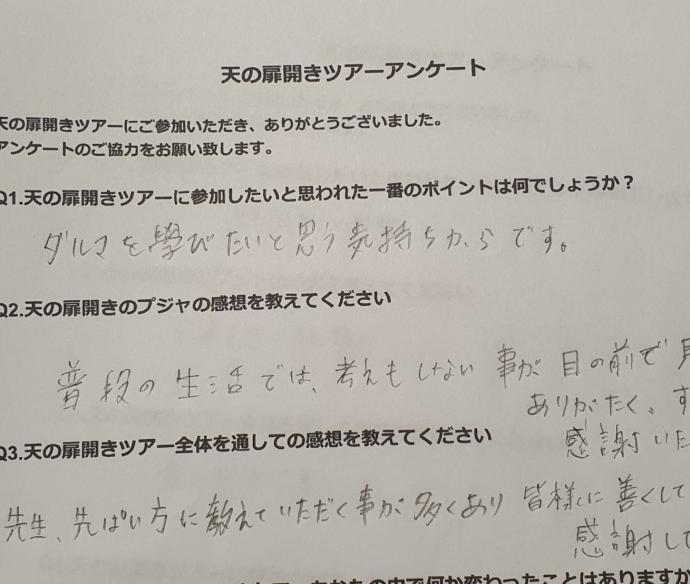 天の扉開きツアーアンケート
天の扉開きツアーにご参加いただき、ありがとうございました。
アンケートのご協力をお願い致します。
Q1.天の扉開きツアーに参加したいと思われた一番のポイントは何でしょうか？
ダルマを學びたいと思う気持ちからです。
Q2.天の扉開きのプジャの感想を教えてください
普段の生活では、考えもしない事が目の前で
ありがたく、す
感謝いた
Q3.天の扉開きツアー全体を通しての感想を教えてください
先生、先ぱい方に教えていただく事が多くあり皆様に善くして
感謝して
中で何か変わったことはありますか